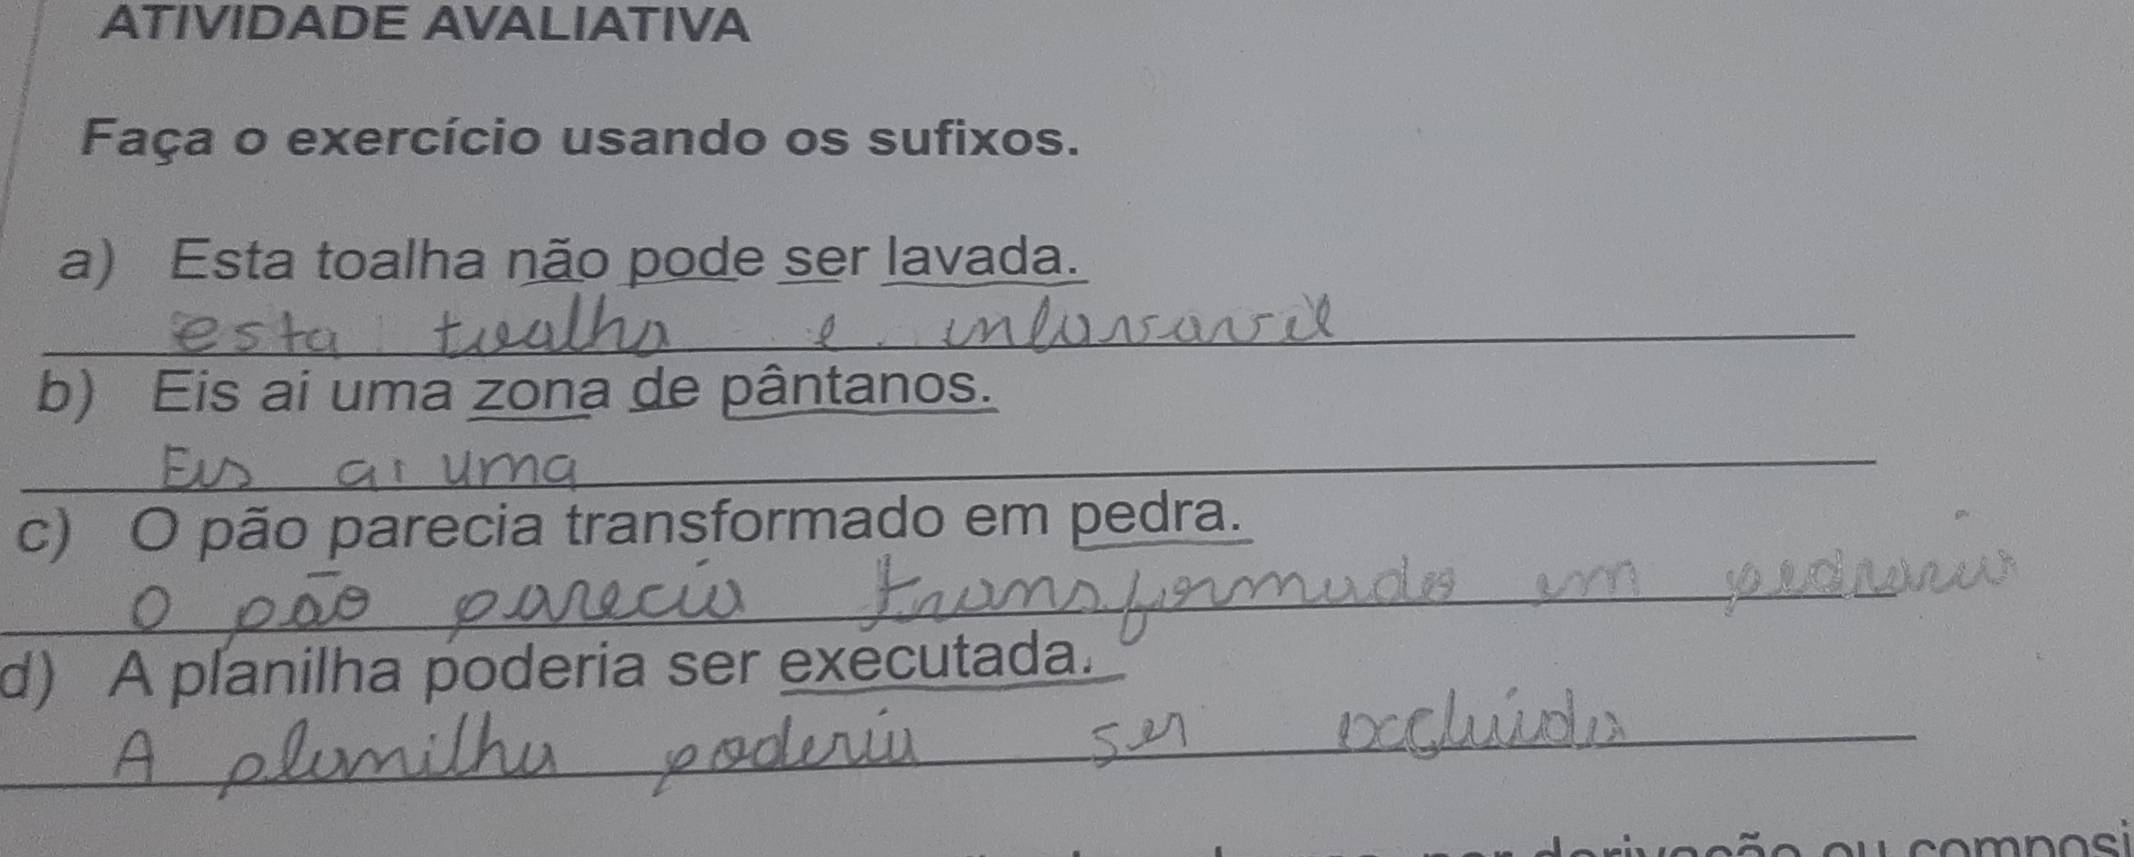 ATIVIDADE AVALIATIVA
Faça o exercício usando os sufixos.
a) Esta toalha não pode ser lavada.
esta toalha e inlavavil
b) Eis ai uma zona de pântanos.
Eis ai uma
c) O pão parecia transformado em pedra.
O pão parecia transformado em pedraria
d) A planilha poderia ser executada.
A planilha poderia ser excluida
derivação ou composi